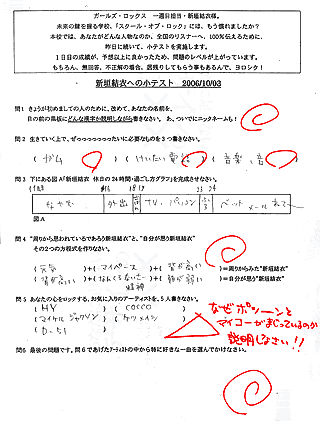 ガールズ・ロックス 一週目担当・新垣結衣様。
未来の鍵を握る学校、「スクール・オブ・ロック」には、もう慣れましたか？
本校では、あなたがどんな人物なのか、全国のリスナーへ、100%伝えるために、
昨日に続いて、小テストを実施します。
1日目の成績が、予想以上に良かったため、問題のレベルが上がっています。
もちろん、無回答、不正解の場合、居残りしてもらう事もあるんで、ヨロシク！
新垣結衣への小テスト 2006/10/03
問1 きょうが初めましての人のために、改めて、あなたの名前を、
目の前の黒板にどんな漢字か説明しながら書きなさい。あ、ついでにニックネームも！
問2 生きていく上で、ぜっっっっったいに必要なものを3つ書きなさい。
( ガム ) ( けいたい電話 ) ( 音楽、音 )
問3 下にある図A「新垣結衣 休日の24時間・過ごし方グラフ」を完成させなさい。
外出 ベット
図A
問4 “周りから思われているであろう新垣結衣”と、“自分が思う新垣結衣”
その2つの方程式を作りなさい。
( 元気 )+( マイペース )+( 背が高い )=周りからみた“新垣結衣”
( 背が高い )+( なんくるないさー精神 )+( )=自分が思う“新垣結衣”
問5 あなたの心をロックする、お気に入りのアーティストを、5人書きなさい。
( HY ) ( COCCO )
( マイケル ジャクソン ) ( ケツメイシ )
( D-51 )
なぜポツーンと
マイコーがまじっているのか
説明しなさい!!
問6 最後の問題です。問6であげたアーティストの中から特に好きな一曲を選んでかけなさい。